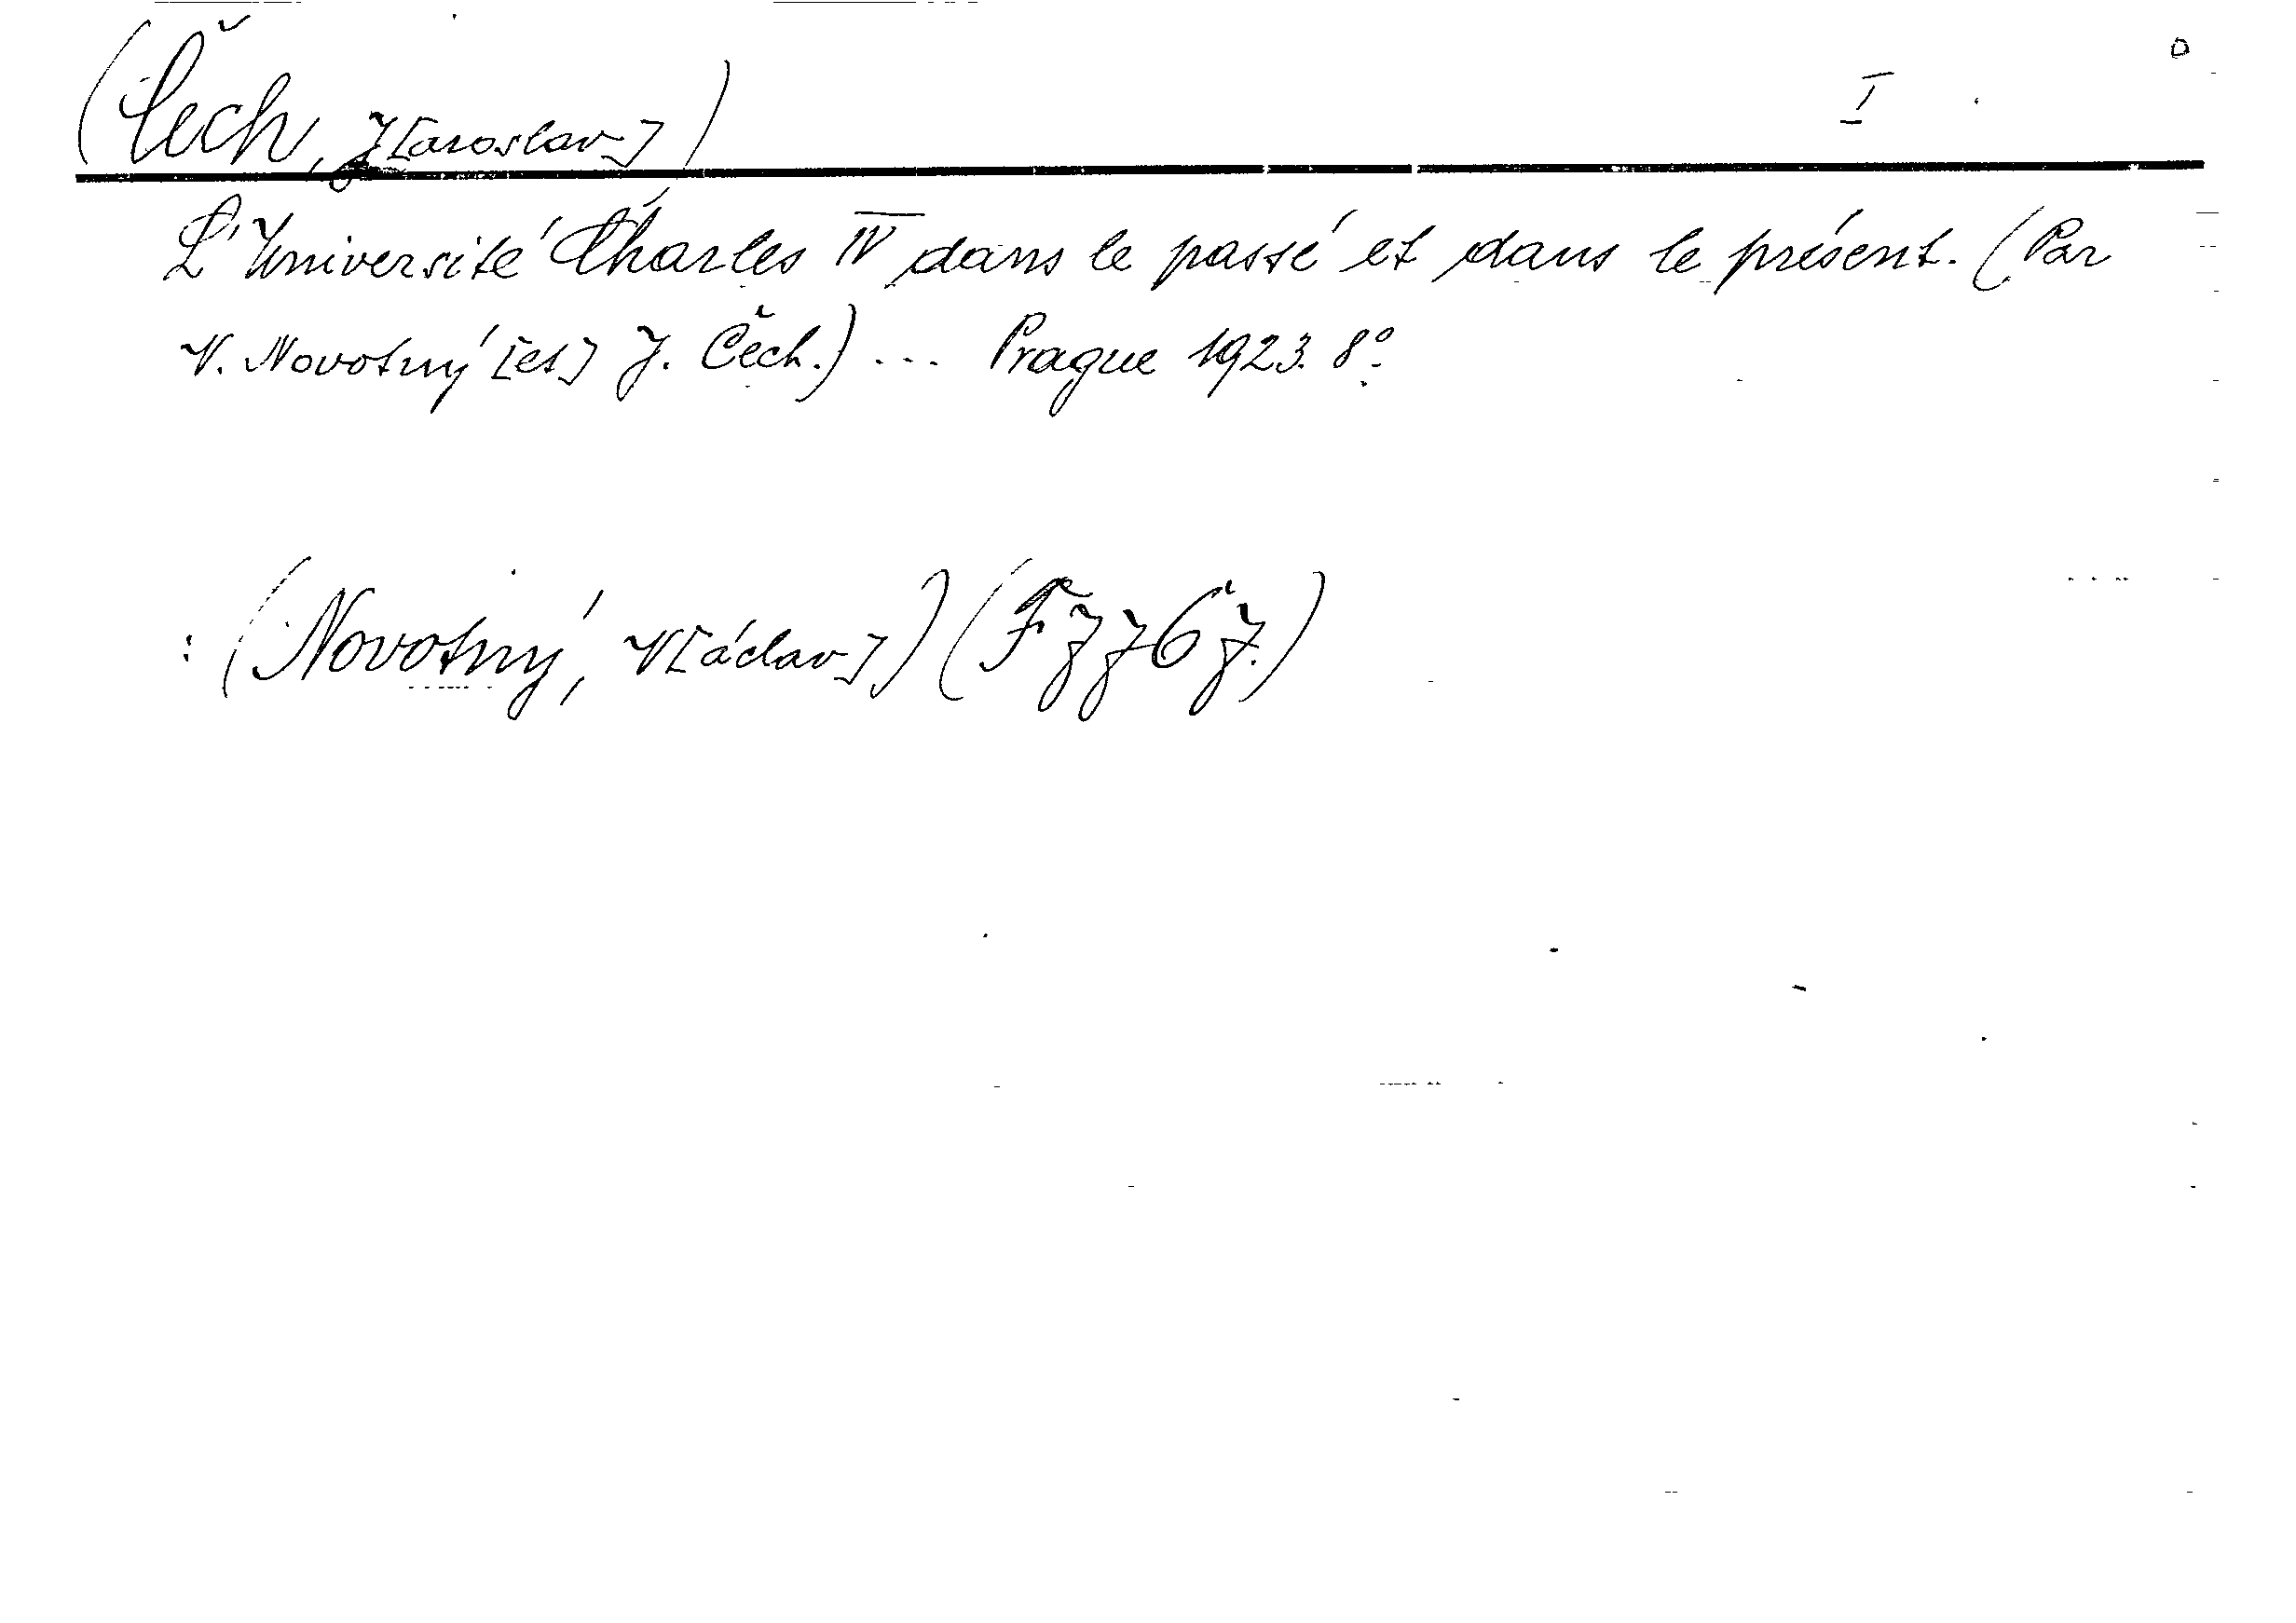 (Čech, J[aroslav]) I
L'Université Charles IV dans le passé et dans le présent. (Par
V. Novotný [et] J. Čech.) ... Prague 1923. 8°.
: (Novotný, V[áclav]) (F 7767.)